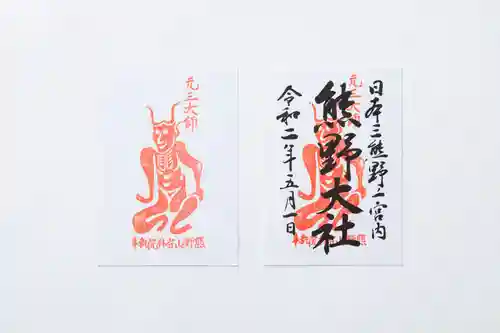 元三大師
日本三熊野一宮内
熊野大社
令和二年五月一日
元三大師